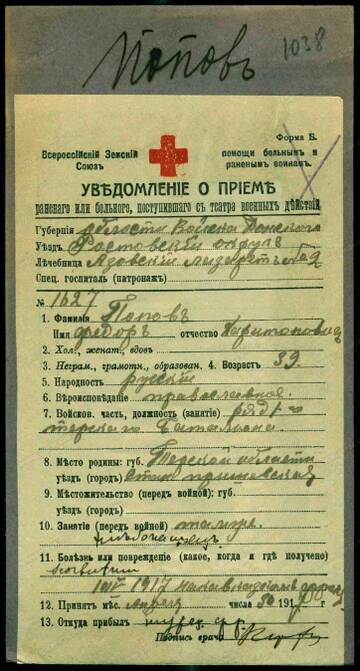 Поповъ
1038
Форма Б.
Всероссійскій Земскій Союзъ
помощи больнымъ и раненымъ воинамъ.
УВѢДОМЛЕНІЕ О ПРІЕМѢ
раненаго или больного, поступившаго съ театра военныхъ дѣйствій
Губернія область Войска Донского
Уѣздъ Ростовскій округъ
Лѣчебница Азовскій лазаретъ
Спец. госпиталь (патронажъ)
№ 1627
1. Фамилія Поповъ
Имя Федоръ отчество Харитоновичъ
2. Хол., женат., вдов.
3. Неграм., грамотн., образован. 4. Возрастъ 39.
5. Народность русскій
6. Вѣроисповѣданіе православное.
7. Войсков. часть, должность (занятіе)
терскаго баталіона.
8. Мѣсто родины: губ. Терской области
уѣздъ (городъ)
9. Мѣстожительство (передъ войной): губ.
уѣздъ (городъ)
10. Занятіе (передъ войной)
11. Болѣзнь или поврежденіе (какое, когда и гдѣ получено)
1917 на кавказскомъ
12. Принятъ мѣс. апрѣля числа 30 191
13. Откуда прибылъ
Подпись врача